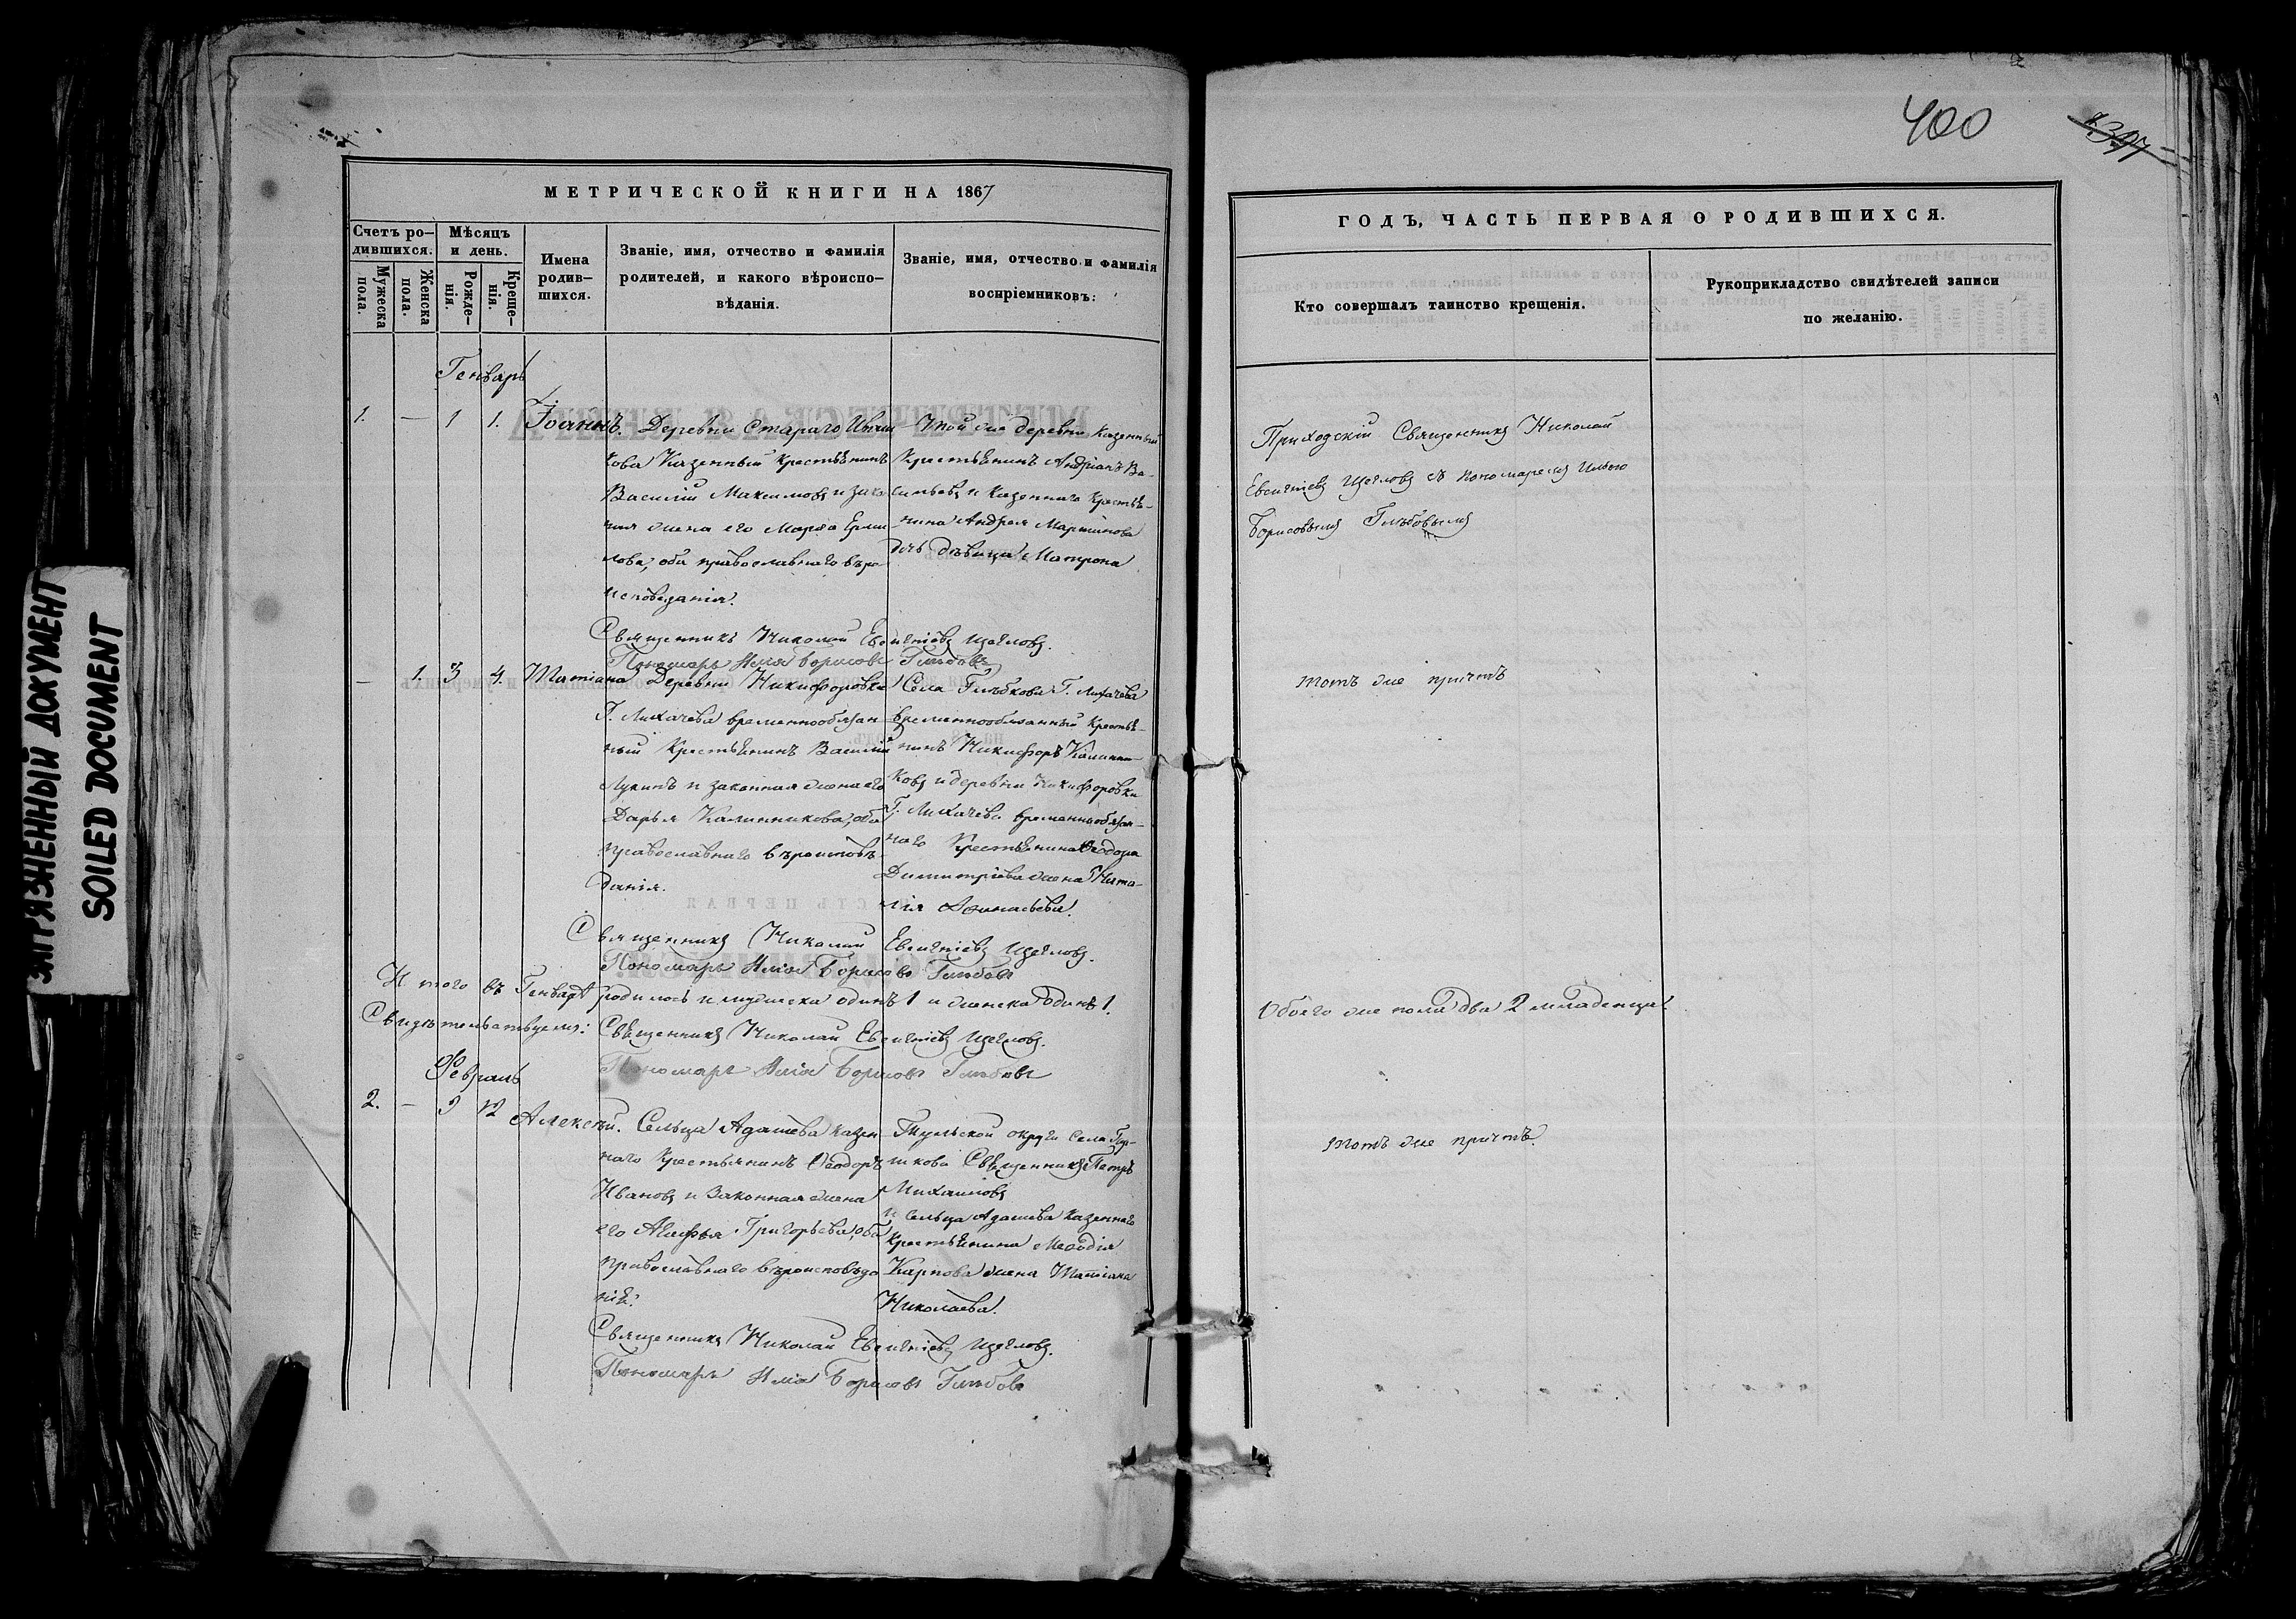 ЗАГРЯЗНЕННЫЙ ДОКУМЕНТ
SOILED DOCUMENT
МЕТРИЧЕСКОЙ КНИГИ НА 1867
Счетъ ро-
дившихся.
Мужеска пола.
Женска пола.
Мѣсяцъ
и день.
Рожде-
нія.
Креще-
нія.
Имена
родив-
шихся.
Званіе, имя, отчество и фамилія
родителей, и какого вѣроиспо-
вѣданія.
Званіе, имя, отчество и фамилія
воспріемниковъ:
Генварь
1. — 1 1. Іоаннъ.
Деревни Стараго
кова Казенный крестьянинъ
Василій Максимовъ и зако-
ная жена его Марѳа Ерми-
лова, оба православнаго вѣро-
исповѣданія.
Той же деревни казенный
Крестьянинъ Андріанъ Ва-
сильевъ и Казеннаго Крестья-
нина Андрея Мартинова
дочь дѣвица Матрона
Священникъ Николай Евгеніевъ Щегловъ.
Пономарь Илія Борисовъ Глѣбовъ
— 1. 3 4. Татіана
Деревни Никифоровки
Г. Лихачева временнообязан-
ный Крестьянинъ Василій
Лукинъ и законная жена его
Дарья Калинникова, оба
православнаго вѣроисповѣ-
данія.
Села Глѣбкова Г. Лихачева
временнообязанный Крестья-
нинъ Никифоръ Калинни-
ковъ и деревни Никифоровки
Г. Лихачева временнообязан-
наго Крестьянина Ѳеодора
Димитріева жена Ната-
лія Аѳанасьева.
Священникъ Николай Евгеніевъ Щегловъ.
Пономарь Илія Борисовъ Глѣбовъ
Итого въ Генварѣ родилось мужеска одинъ 1 и женска одинъ 1.
Свидѣтельствуемъ: Священникъ Николай Евгеніевъ Щегловъ.
Пономарь Илія Борисовъ Глѣбовъ
Февраль
2. — 9 12 Алексѣй.
Сельца Адашева казен-
наго Крестьянинъ Ѳеодоръ
Ивановъ и Законная жена
его Агафья Григорьева, оба
православнаго вѣроисповѣда-
нія.
Тульской округи Села
Священникъ Петръ
Михайловъ
и Сельца Адашева Казеннаго
Крестьянина Меѳодія
Карпова жена Татіана
Николаева.
Священникъ Николай Евгеніевъ Щегловъ.
Пономарь Илія Борисовъ Глѣбовъ
400
1397
ГОДЪ, ЧАСТЬ ПЕРВАЯ О РОДИВШИХСЯ.
Кто совершалъ таинство крещенія.
Рукоприкладство свидѣтелей записи
по желанію.
Приходскій Священникъ Николай
Евгеніевъ Щегловъ съ пономаремъ Ильею
Борисовымъ Глѣбовымъ
Тотъ же причтъ
Обоего же пола два 2 младенца.
Тотъ же причтъ.